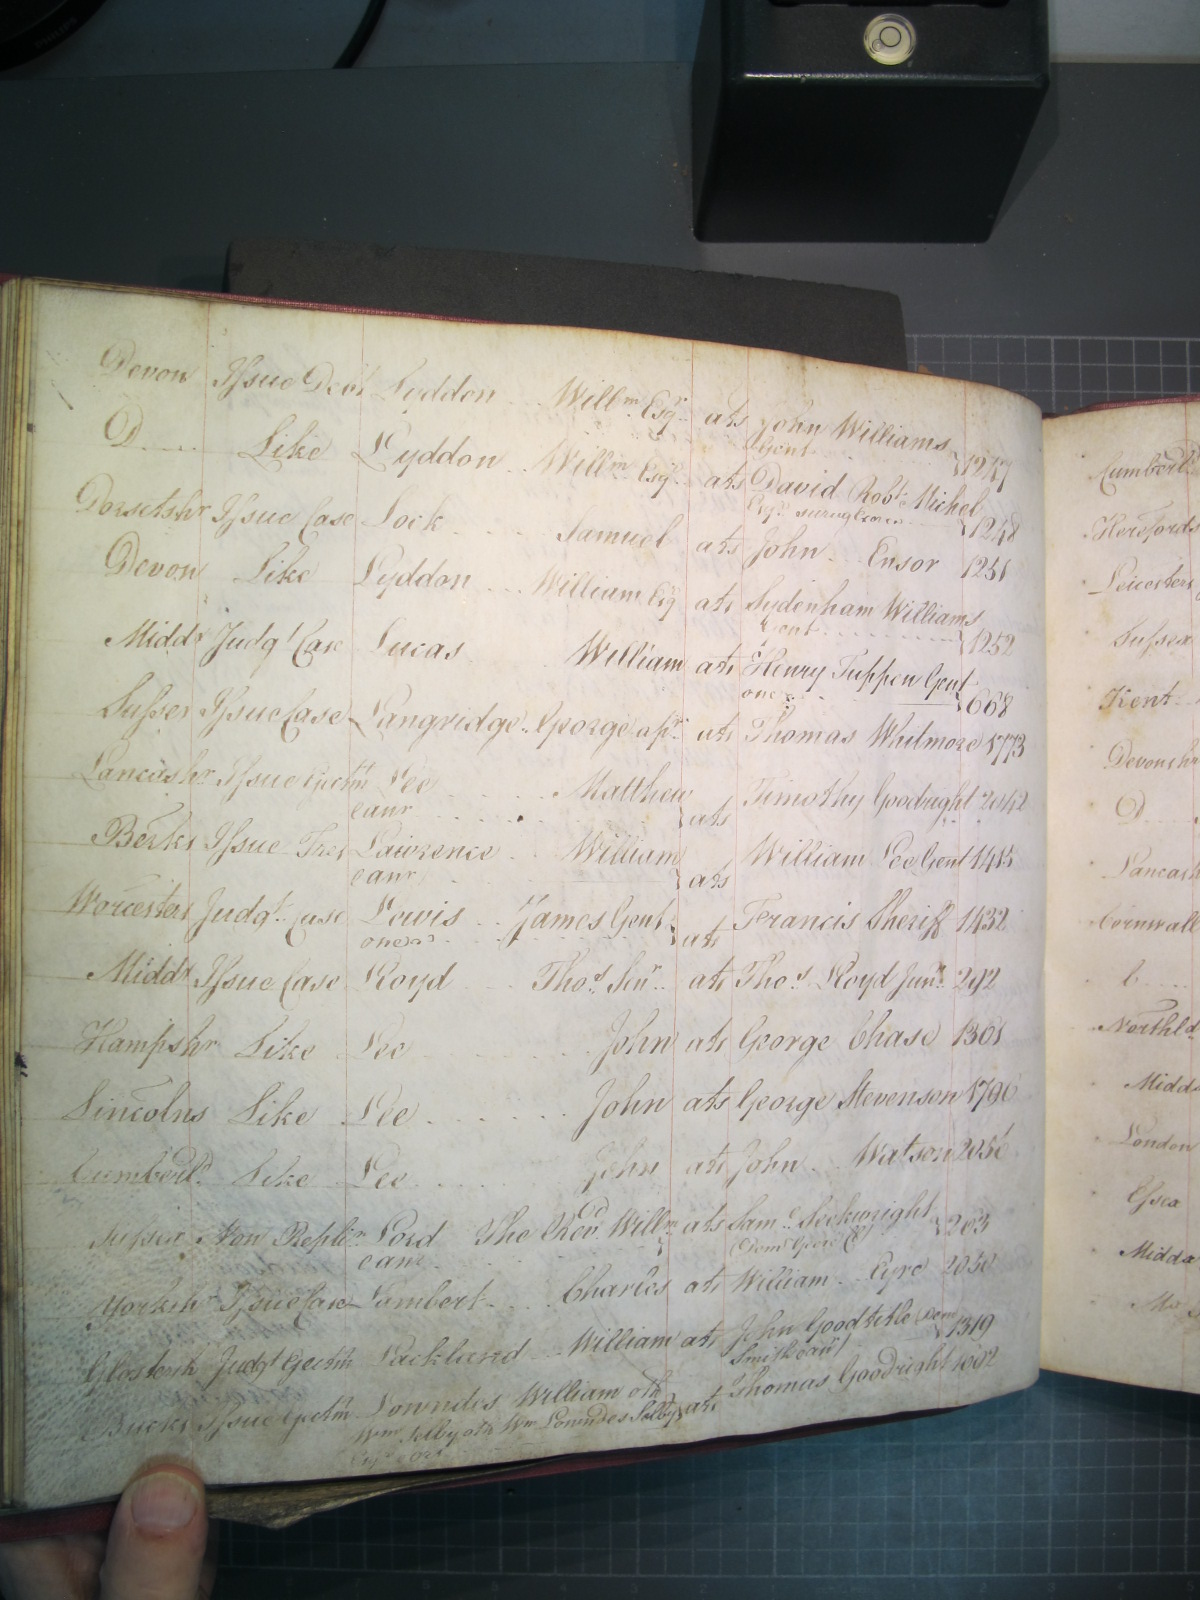 PHILIPS
Devon Issue Devt Lyddon Willm Esqr ats John Williams
Gent 1247
D Like Lyddon Willm Esqr ats David Robt Michel
Esqr 1248
Dorsetshr Issue Case Lock Samuel ats John Ensor 1251
Devon Like Lyddon William Esq ats Sydenham Williams
Gent 1252
Middx Judgt Case Lucas William ats Henry Tuppen Gent
one &c 668
Sussex Issue Case Langridge George ats Thomas Whitmore 1773
Lancashr Issue Ejectm Lee Matthew ats Timothy Goodright 2042
Berks Issue Tres Lawrence William ats William Lee Gent 1415
Worcesters Judgt Case Lewis James Gent ats Francis Sheriff 1432
one
Middx Issue Case Lloyd Thos Senr ats Thos Lloyd Junr 292
Hampshr Like Lee John ats George Chase 1361
Lincolns Like Lee John ats George Stevenson 1796
Cumberld Like Lee John ats John Watson 2056
Sussex Non Replin Lord The Revd Willm ats Saml 203
Yorkshr Issue Case Lambert Charles ats William Eyre 2050
Glostersh Judgt Ejectm Lackland William ats John Goodtitle Dem 1319
Smith
Bucks Issue Ejectm Lowndes William oth ats Thomas Goodright 1082
Wm Selby oth Wm Lowndes Selby
Cumberld
Herefords
Leicesters
Sussex
Kent
Devonshr
D
Lancash
Cornwall
Northld
Midds
London
Essex
Middx